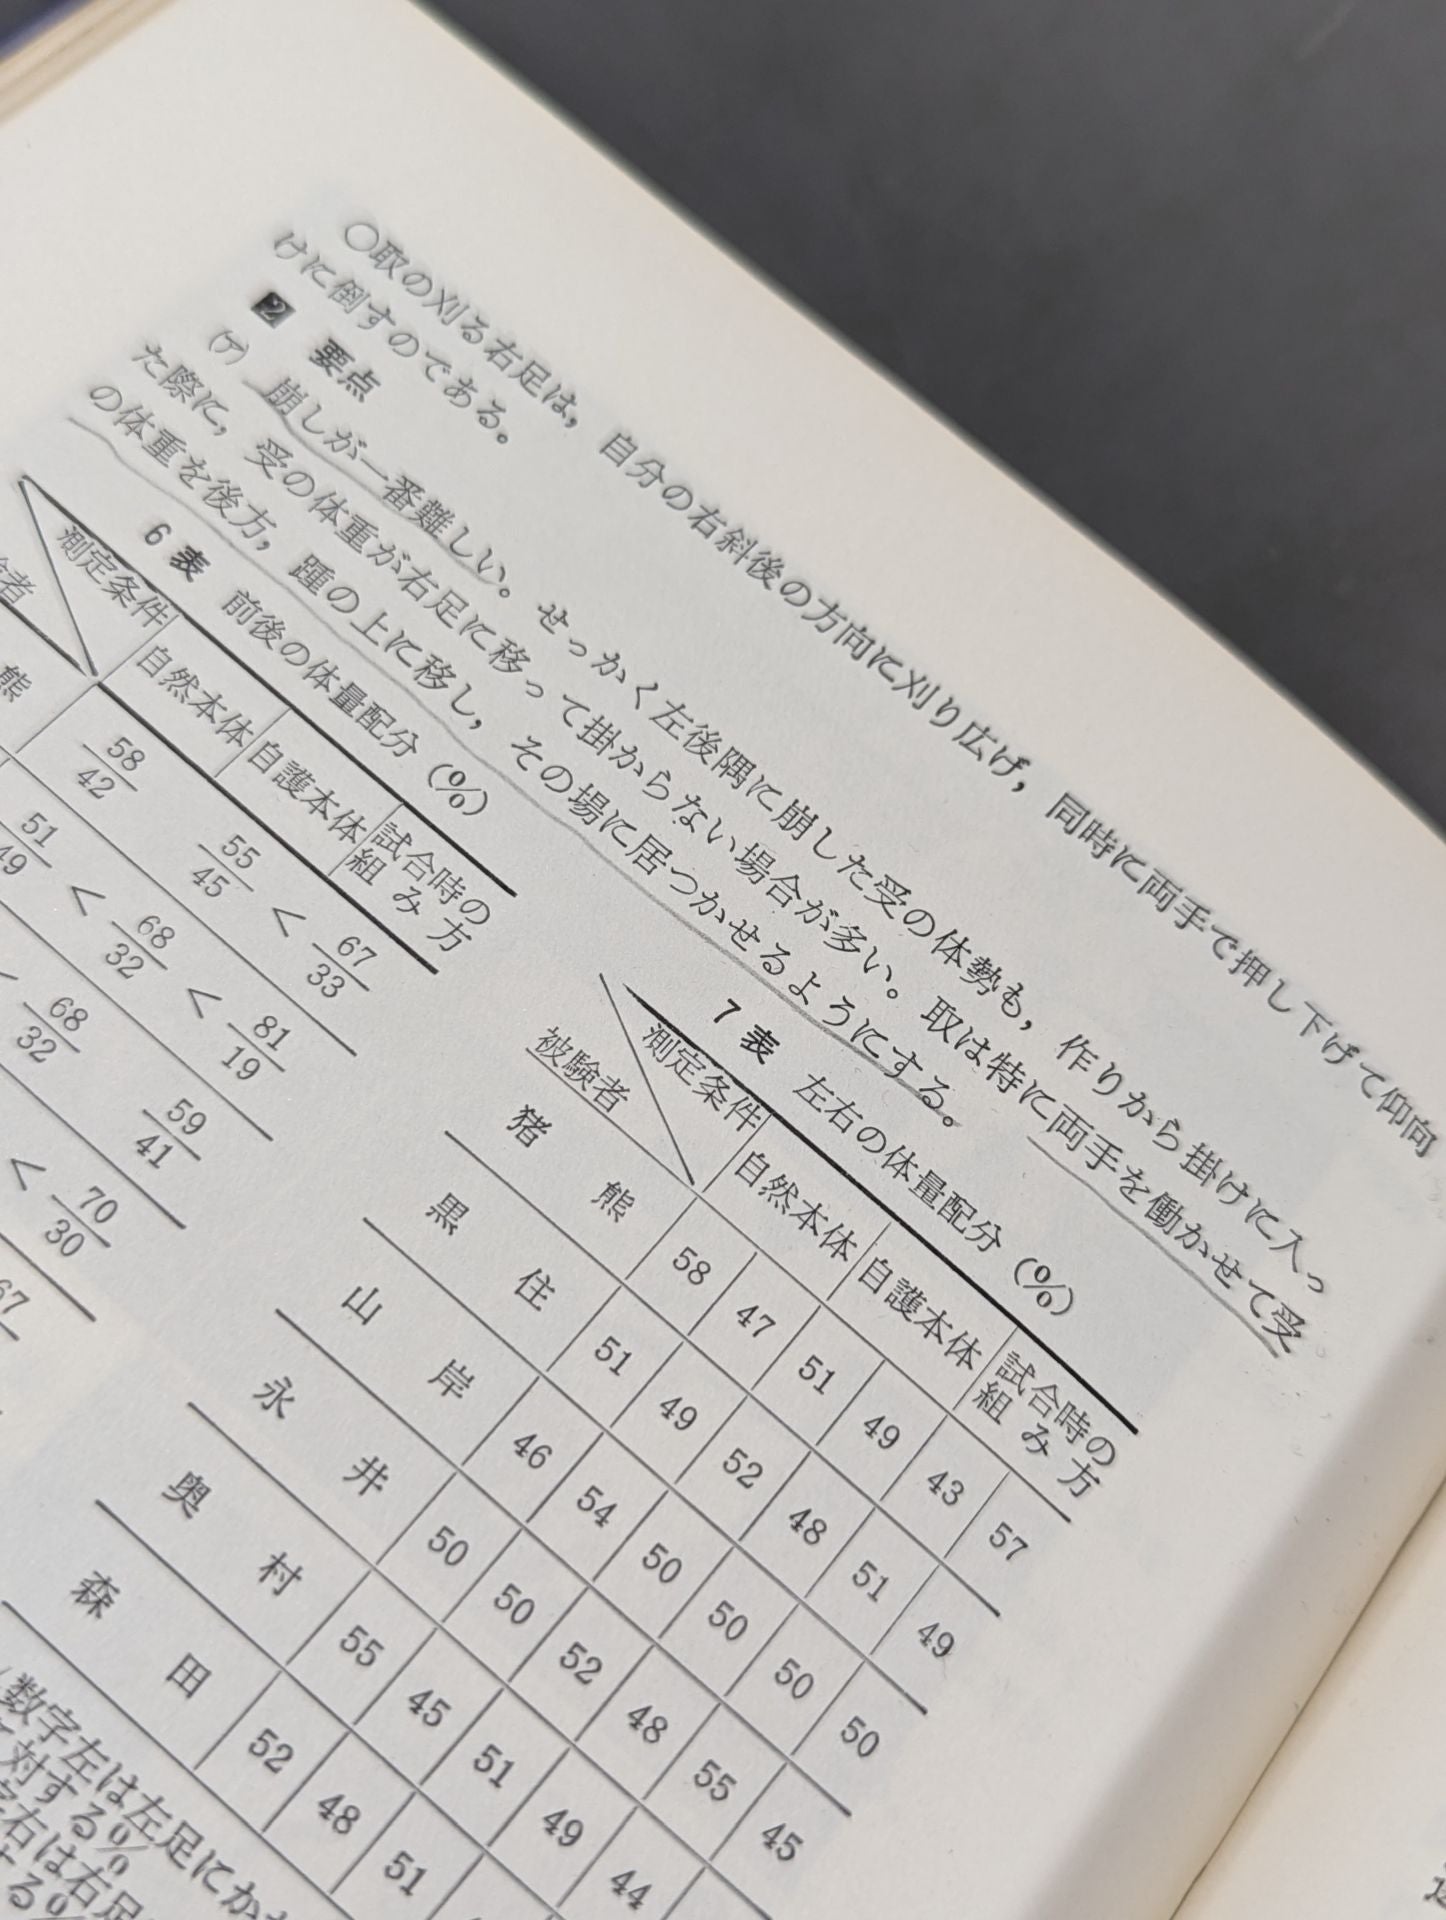 〇取の刈る右足は，自分の右斜後の方向に刈り広げ，同時に両手で押し下げて仰向
けに倒すのである。
2 要点
(ｱ) 崩しが一番難しい。せっかく左後隅に崩した受の体勢も，作りから掛けに入っ
た際に，受の体重が右足に移って掛からない場合が多い。取は特に両手を働かせて受
の体重を後方，踵の上に移し，その場に居つかせるようにする。
6 表 前後の体量配分 (%)
測定条件 自然本体 自護本体 試合時の組み方
者
熊 58/42 55/45 < 67/33
51/49 < 68/32 < 81/19
68/32 59/41
< 70/30
67
7 表 左右の体量配分 (%)
被験者 測定条件 自然本体 自護本体 試合時の組み方
猪熊 58 47 51 49 43 57
黒住 51 49 52 48 51 49
山岸 46 54 50 50 50 50
永井 50 50 52 48 55 45
奥村 55 45 51 49 44
森田 52 48 51
数字左は左足にか
対する%
右は右足
する%